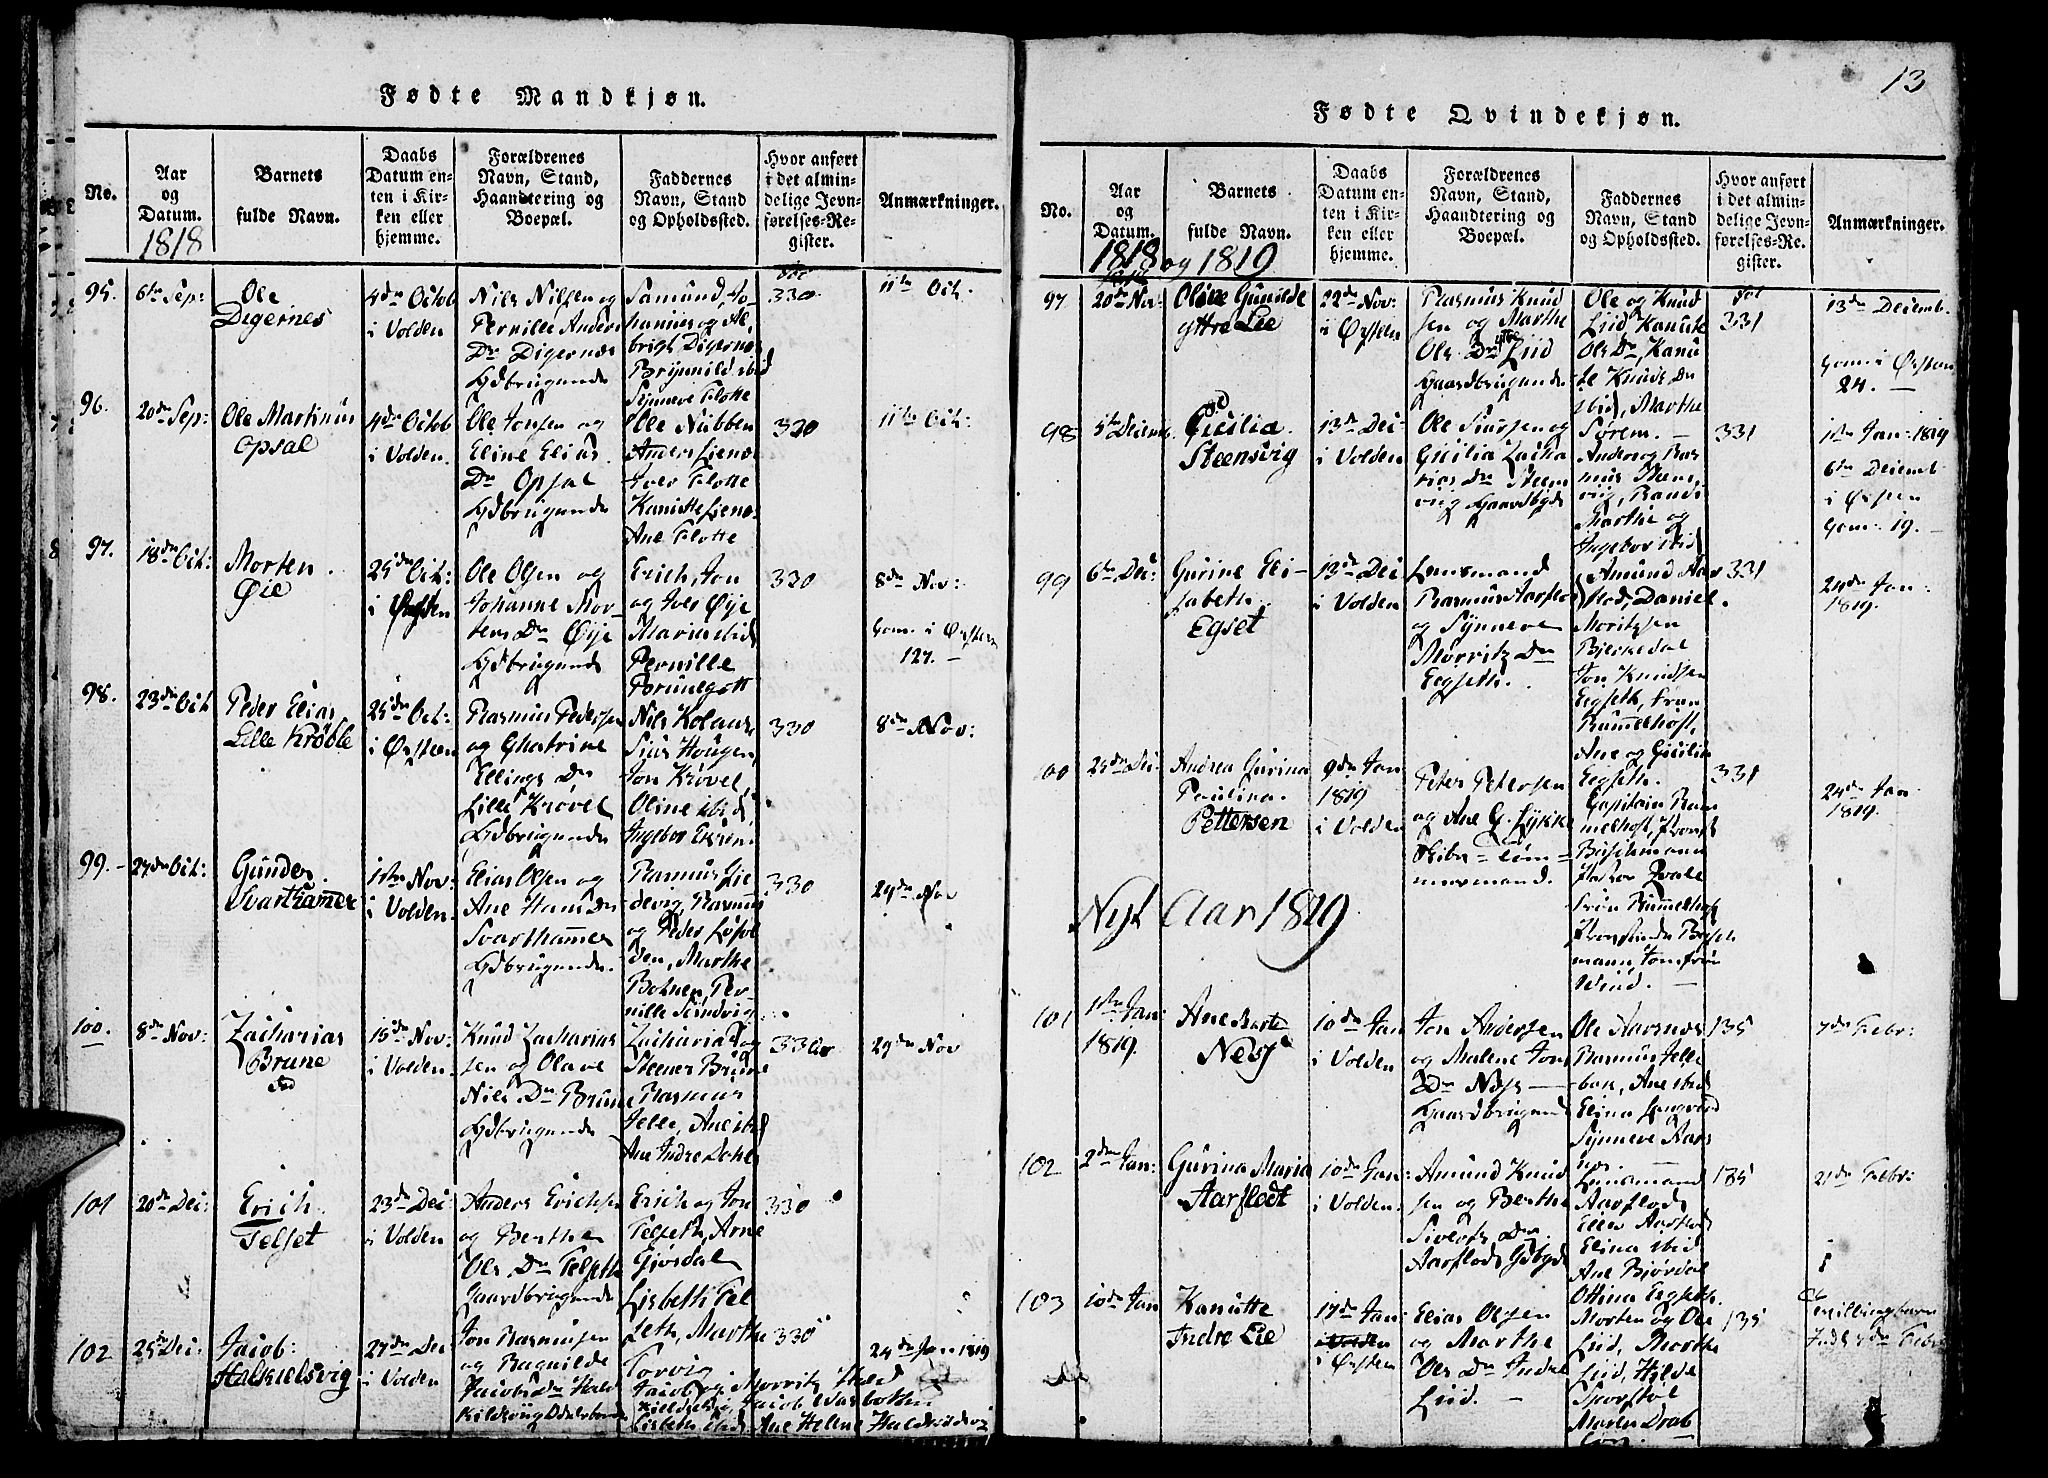 Fødte Mandkjøn.
No.
Aar
og
Datum.
1818
Barnets
fulde Navn.
Daabs
Datum en-
ten i Kir-
ken eller
hjemme.
Forældrenes
Navn, Stand,
Haandtering og
Boepæl.
Faddernes
Navn, Stand
og Opholdssted.
Hvor anført
i det almin-
delige Jevn-
førelses-Re-
gister.
Anmærkninger.
95.
6te Sep:
Ole
Digernes
4de Octob
i Volden
Nils Nilsen og
Pernille Anders
Dr Digernæs
Samund, Jo-
hannis og Al-
brigt Digernæs
Brynnild ibid
Synneve Flotte
330
11te Oct.
96.
20de Sep:
Ole Martinus
Opsal
4de Octob
i Volden.
Ole Jonsen og
Eline Elias
Dr Opsal
Ole Nubben
Anders Lienæs
Iver Flotte
Kanutte Lienæs
Ane Flotte
330
11te Oct:
97.
18de Oct:
Morten
Øie
25de Oct:
i Ørsten
Ole Olsen og
Johanne Mor-
tens Dr Øye
Erich, Jon
og Iver Øye
Marie ibid
Pernille
Brunegott
330
8de Nov:
Gom. i Ørsten
127. —
98.
23de Oct
Peder Elias
Lille Krøble
25de Oct:
i Ørsten
Rasmus Pedersen
og Chatrine
Ellings Dr
Lille Krøvel
Nils Kolaas
Sius Hougen
Jon Krøvel
Oline ibid
Ingebor Eksem
330
8de Nov:
99. -
27de Oct:
Gunder
Svarthamer
1ste Nov:
i Volden.
Elias Olsen og
Ane Hans Dr
Svarthammer
Rasmus Lie
devig Rasmus
og Peder Løfol
den, Marthe
Bohnen Per-
nille Sundvig
330
29de Nov
100.
8de Nov:
Zacharias
Brune
15de Nov:
i Volden
Knud Zacharias
sen og Olave
Nils Dr Brune
Zacharias og
Steener Brune
Rasmus
Jelle, Ane ibid
Ane Indre Dahl
330
29de Nov
101
20de Dec:
Erich
Felset
23de Dec
i Volden
Anders Erichsen
og Berthe
Ols Dr Felseth
Gaardbrugende
Erich og Jon
Felseth, Arne
Gjørdal
Lisbeth Fel
seth, Marthe
Torvig
330
102
25de Dec:
Jacob
Halkielsvig
27de Dec
i Volden
Jon Rasmusen
og Ragnilde
Jacobs Dr Hald
Jacob og Morritz Hald
Jacob Aasbotten
Lisbeth ibid, Ane Helene Haldkildsvi
330
24de Jan 1819
13
Fødte Qvindekjøn.
No.
Aar
og
Datum.
1818 og 1819
Barnets
fulde Navn.
Daabs
Datum en-
ten i Kir-
ken eller
hjemme.
Forældrenes
Navn, Stand,
Haandtering og
Boepæl.
Faddernes
Navn, Stand
og Opholdssted.
Hvor anført
i det almin-
delige Jevn-
førelses-Re-
gister.
Anmærkninger.
97.
20de Nov:
Oline Gunilde
yttre Lie
22de Nov:
i Ørsten
Rasmus Knud
sen og Marthe
Ols Dr yttre Liid
Gaardbrugende
Ole og Knud
Liid, Kanutte
Ols Dr, Kanu
te Knuds Dr
ibid, Marthe
Sørem. —
331
13de Decemb.
Gom. i Ørsten
24. —
98
5te Decemb.
Cicilia
Steensvig
13de Dec
i Volden
Ole Siursen og
Cicilia Zacha
rias Dr Steens
vig Gaardbrgde
Anders og Ras
mus Steens
vig, Randi
Marthe og
Ingebor ibid
331
1ste Jan: 1819
6te Decemb
i Ørsten
Gom: 19. —
99
6te Dec:
Gurine Eli-
sabeth
Egset
13de Dec
i Volden
Lensmand
Rasmus Aarflo
og Synneve
Morritz Dr
Egseth.
Amund Aar
flod, Daniel
Moritzsen
Bjerkedal
Jon Knudsen
Egseth, Frøn
Rummelhoft,
Ane og Cicilia
Egseth.
331
24de Jan:
1819.
100
25de Dec:
Andrea Gurina
Paulina.
Pettersen
9de Jan
1819
i Volden
Peter Petersen
og Ane G. Lykke
Skibs = Tøm =
mermand.
Capitain Rum
melhoft, Provst
Buschmann
Frøn Rummelhoft
Provstinde Busch
mann, Jomfrue
Wind. —
331
24de Jan
1819.
Nyt Aar 1819
101
1ste Jan:
1819.
Ane Barte
Ness
10de Jan
i Volden
Jon Andersen
og Malene Jon
Dr Næss —
Gaardbrugende
Ole Aarsnæs
Rasmus Jelle
bak, Ane ibid
Elina Langvand
Synneve Aars
næs. —
135
7de Febr:
102
2den Jan:
Gurina Maria
Aarflodt
10de Jan:
i Volden
Amund Knud
sen og Berthe
Siverts Dr
Aarflods Gdbgde
Lensmand
Aarflod
Ellen Aarflod
Elina ibid
Ane Bjørdal
Ottina Egseth.
135
21de Febr:
103
10de Jan
Kanutte
Indre Lie
17de Jan:
i Ørsten
Elias Olsen
og Marthe
Ols Dr Indre
Liid. —
Morten og Ole
Liid, Marthe
Liid, Hilde
Sporstøl
Marthe Drab
135
Tvillingbarn